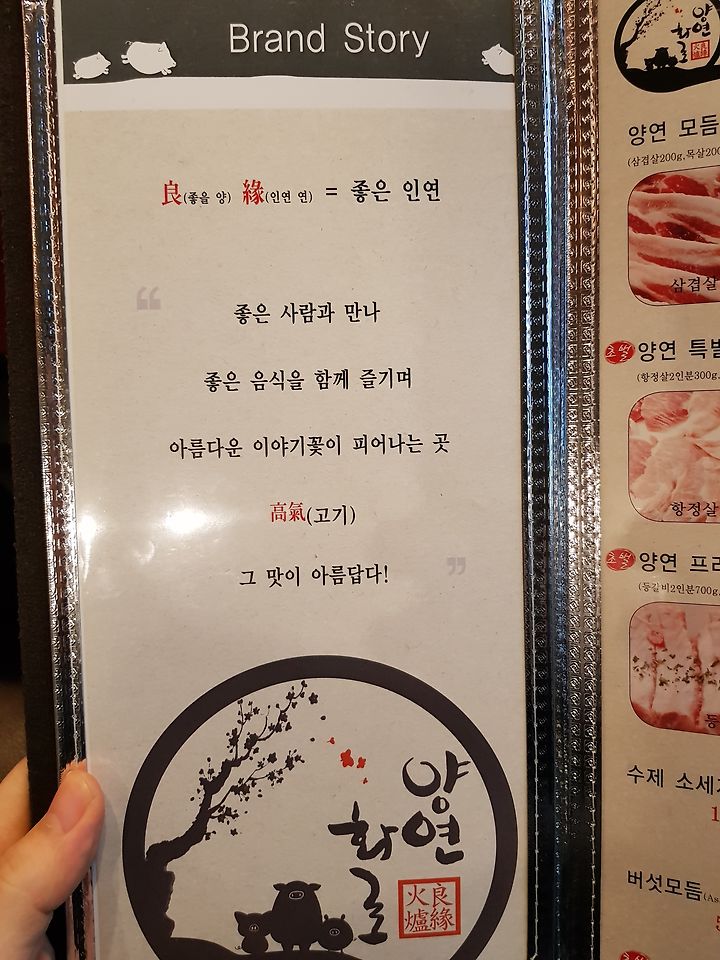 Brand Story
良(좋을 양) 緣(인연 연) = 좋은 인연
“
좋은 사람과 만나
좋은 음식을 함께 즐기며
아름다운 이야기꽃이 피어나는 곳
高氣(고기)
그 맛이 아름답다!
”
양연
화로
良緣
火爐
양연
화로
양연 모듬
(삼겹살200g,목살200
삼겹살
초벌
양연 특별
(항정살2인분300g,
항정살
초벌
양연 프리
(등갈비2인분700g,
등
수제 소세지
1
버섯모듬(As
5